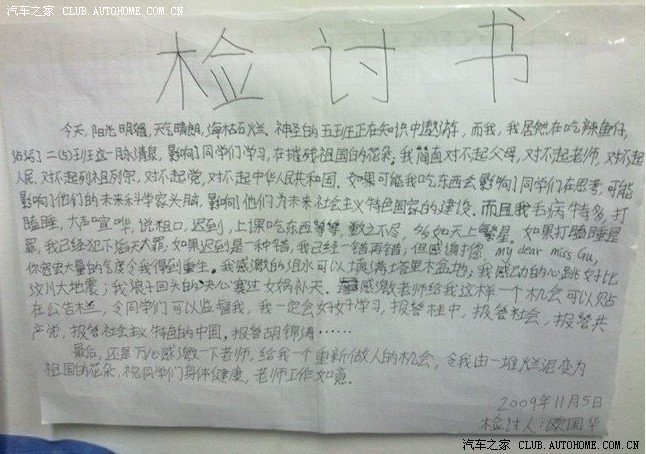 汽车之家 CLUB.AUTOHOME.COM.CN
检 讨 书
今天,阳光明媚,天气晴朗,海枯石烂,神圣的五班正在知识中遨游,而我,我居然在吃辣鱼仔,
玷污了二(5)班这一脉清泉,影响了同学们学习,在摧残祖国的花朵,我简直对不起父母,对不起老师,对不起
人民,对不起列祖列宗,对不起党,对不起中华人民共和国.如果可能我吃东西会影响了同学们在思考,可能
影响了他们的未来科学家头脑,影响了他们为未来社会主义特色国家的建设.而且我毛病特多,打
瞌睡,大声喧哗,说粗口,迟到,上课吃东西等等,数之不尽,多如天上繁星.如果打瞌睡是
罪,我已经犯下滔天大罪,如果迟到是一种错,我已经一错再错,但感谢您,my dear miss Gu,
你宽宏大量的气度令我得到重生,我感激的泪水可以填满塔里木盆地;我感动的心跳好比
汶川大地震;我浪子回头的决心赛过女娲补天.感激老师给我这样一个机会可以贴
在公告栏,令同学们可以监督我,我一定会好好学习,报答桂中,报答社会,报答共
产党,报答社会主义特色的中国,报答胡锦涛……
最后,还是万分感激一下老师,给我一个重新做人的机会,令我由一堆烂泥变为
祖国的花朵,祝同学们身体健康,老师工作如意.
2009年11月5日
检讨人:欧国华
汽车之家 CLUB.AUTOHOME.COM.CN